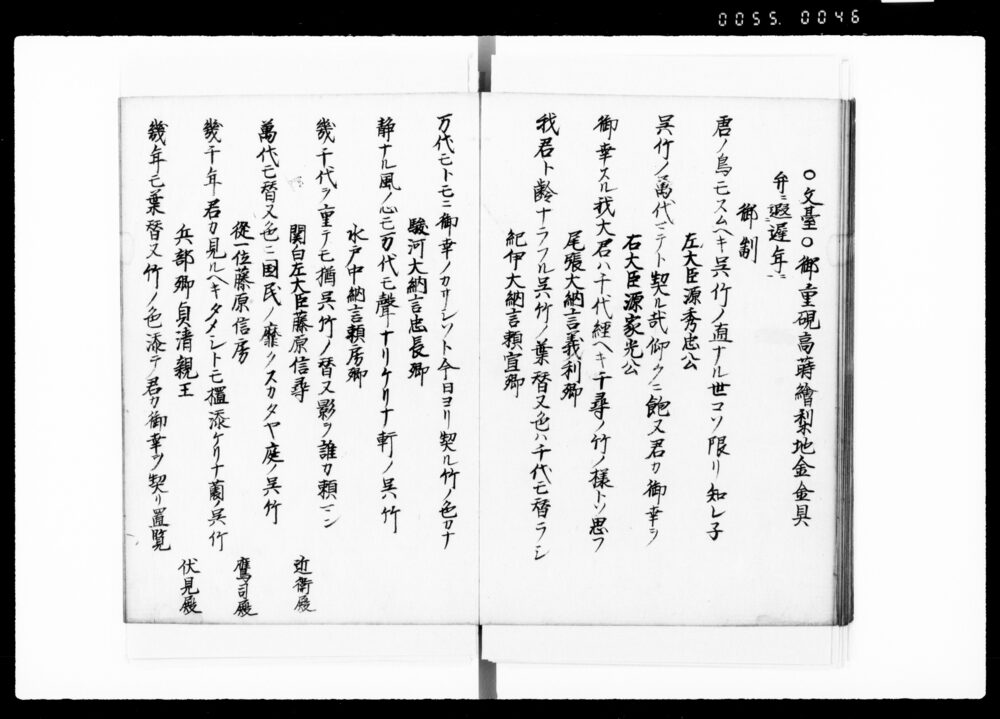 0055.0046
○文臺○御重硯高蒔繪梨地金金具
弁ニ遐遅年ニ
御製
唐ノ鳥モスムヘキ呉竹ノ直ナル世コソ限リ知レ子
左大臣源秀忠公
呉竹ノ萬代マテト契ル哉仰クニ飽ヌ君カ御幸ヲ
右大臣源家光公
御幸スル我大君ハ千代經ヘキ千尋ノ竹ノ様トソ思フ
尾張大納言義利卿
我君ト齢ナラフル呉竹ノ葉替ヌ色ハ千代モ替ラシ
紀伊大納言頼宣卿
万代モトモニ御幸ノカサシソト今日ヨリ契ル竹ノ色カナ
駿河大納言忠長卿
静ナル風ノ心モ万代モ聲ナリケリナ軒ノ呉竹
水戸中納言頼房卿
幾千代ヲ重テモ猶呉竹ノ替ヌ影ヲ誰カ頼マン
関白左大臣藤原信尋 近衛殿
萬代モ替ヌ色ニ国民ノ靡クスカタヤ庭ノ呉竹
從一位藤原信房 鷹司殿
幾千年君カ見ルヘキタメシトモ樞添ケリナ薗ノ呉竹
兵部卿貞清親王 伏見殿
幾年モ葉替ヌ竹ノ色添テ君カ御幸ヲ契リ置覧